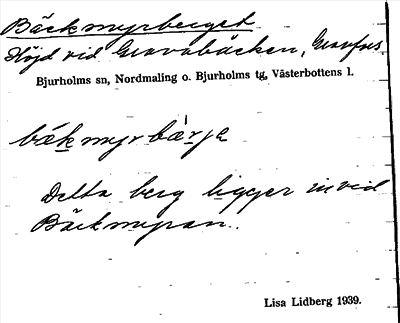 Bäckmyrberget
Höjd vid Gravabäcken,
Bjurholms sn, Nordmaling o. Bjurholms tg, Västerbottens l.
Detta berg ligger invid
Bäckmyran.
Lisa Lidberg 1939.